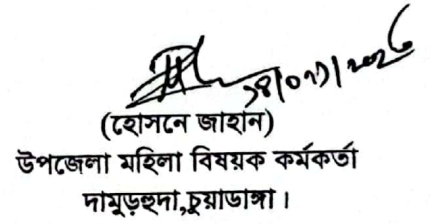 (হোসনে জাহান)
উপজেলা মহিলা বিষয়ক কর্মকর্তা
দামুড়হুদা,চুয়াডাঙ্গা।